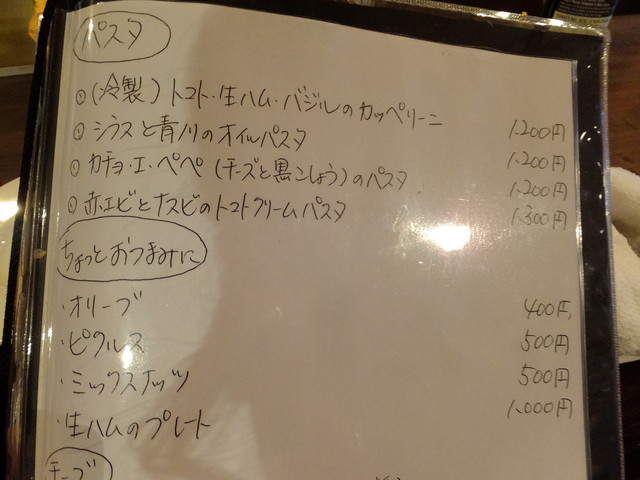 パスタ
①(冷製)トマト・生ハム・バジルのカッペリーニ 1.200円
②シラスと青のりのオイルパスタ 1.200円
③カチョ・エ・ペペ(チーズと黒こしょう)のパスタ 1.200円
④赤エビとナスビのトマトクリームパスタ 1.300円
ちょっとおつまみに
・オリーブ 400円
・ピクルス 500円
・ミックスナッツ 500円
・生ハムのプレート 1.000円
チーズ